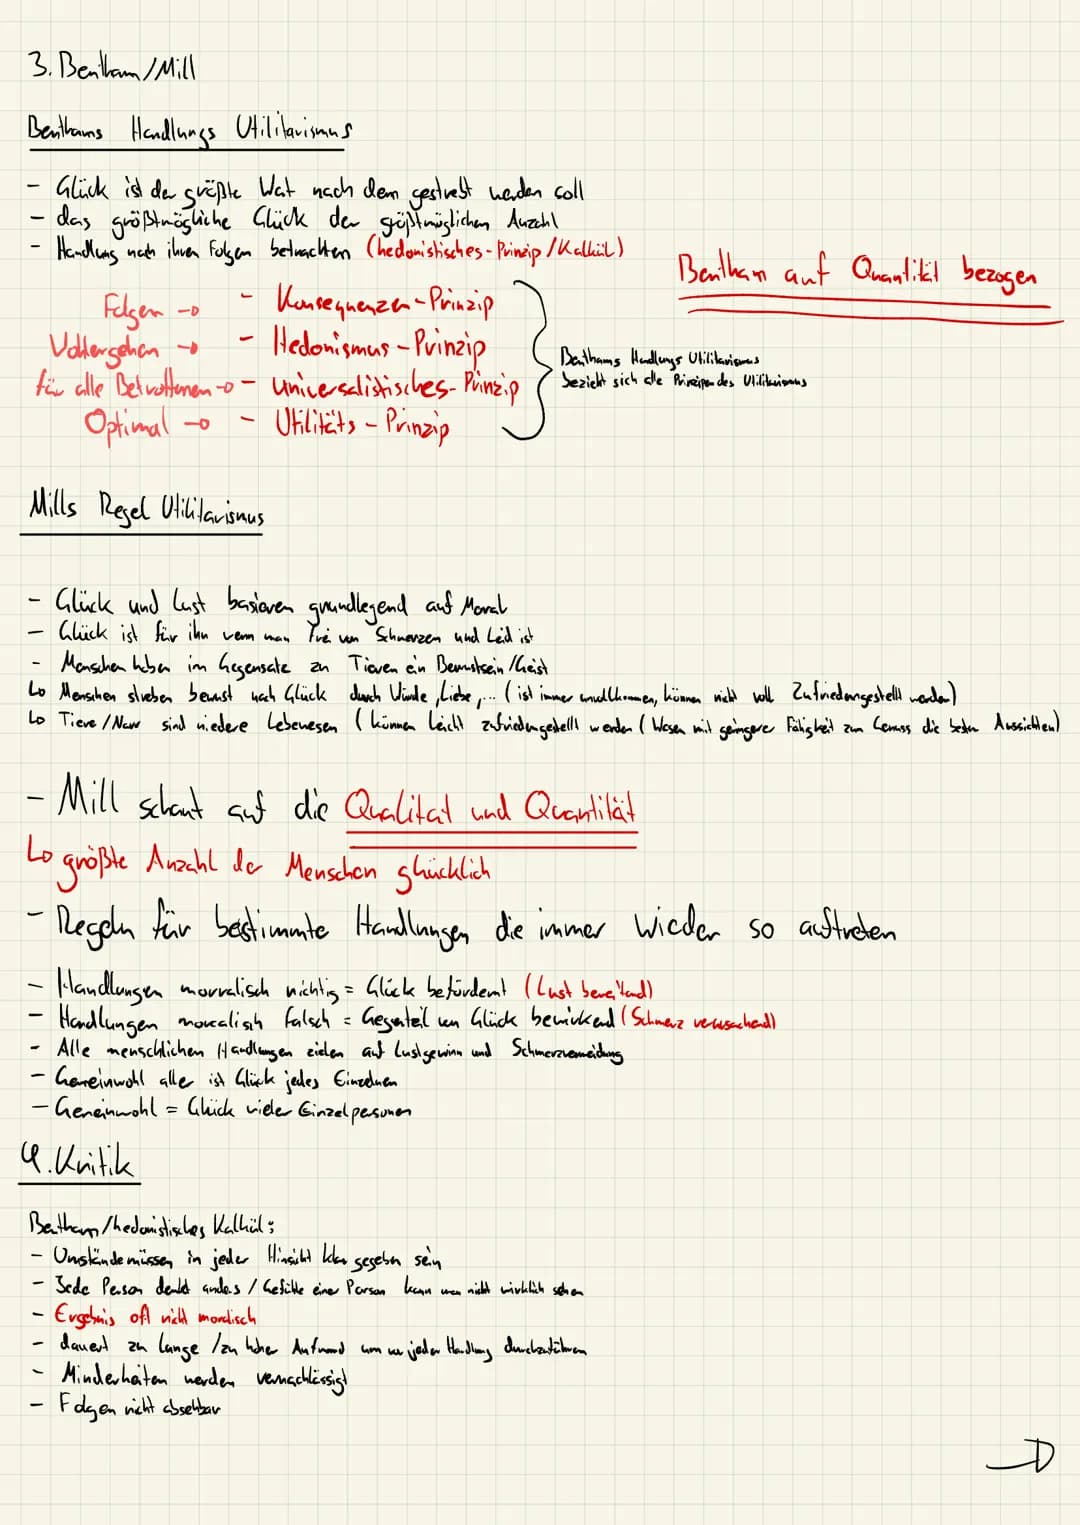 3. Bentham/Mill
Benthams Handlungs Utilitarismus
- Glück ist der größte Wat nach dem gestrebt werden soll
- das größtmögliche Glück der größtmöglichen Anzahl
- Handlung nach ihren Folgen betrachten (hedonistisches-Prinzip/Kalkül)
Bentham auf Quantität bezogen
Folgen → - Konsequenzen-Prinzip
Wohlergehen → - Hedonismus-Prinzip
für alle Betroffenen → - universalistisches-Prinzip
Optimal → - Utilitäts-Prinzip
Benthams Handlungs Utilitarismus
bezieht sich alle Prinzipen des Utilitarismus
Mills Regel Utilitarismus
- Glück und Lust basieren grundlegend auf Moral
- Glück ist für ihn wenn man frei von Schmerzen und Leid ist
- Menschen haben im Gegensatz zu Tieren ein Bewusstsein/Geist
↳ Menschen streben bewusst nach Glück durch Würde, Liebe,... (ist immer unvollkommen, können nicht voll Zufriedengestellt werden)
↳ Tiere/Narr sind niedere Lebewesen (können leicht zufriedengestellt werden (Wesen mit geringerer Fähigkeit zum Genuss die besten Aussichten)
- Mill schaut auf die Qualität und Quantität
↳ größte Anzahl der Menschen glücklich
- Regeln für bestimmte Handlungen die immer wieder so auftreten
- Handlungen moralisch richtig = Glück befördernt (Lust bereitend)
- Handlungen moralisch falsch = Gegenteil von Glück bewirkend (Schmerz verursachend)
- Alle menschlichen Handlungen zielen auf Lustgewinn und Schmerzvermeidung
- Gemeinwohl aller ist Glück jedes Einzelnen
- Gemeinwohl = Glück vieler Einzelpersonen
4. Kritik
Bentham/hedonistisches Kalkül:
- Umstände müssen in jeder Hinsicht klar gegeben sein
- Jede Person denkt anders / Gefühle einer Person kann man nicht wirklich sehen
- Ergebnis oft nicht moralisch
- dauert zu lange /zu hoher Aufwand um vor jeder Handlung durchzuführen
- Minderheiten werden vernachlässigt
- Folgen nicht absehbar